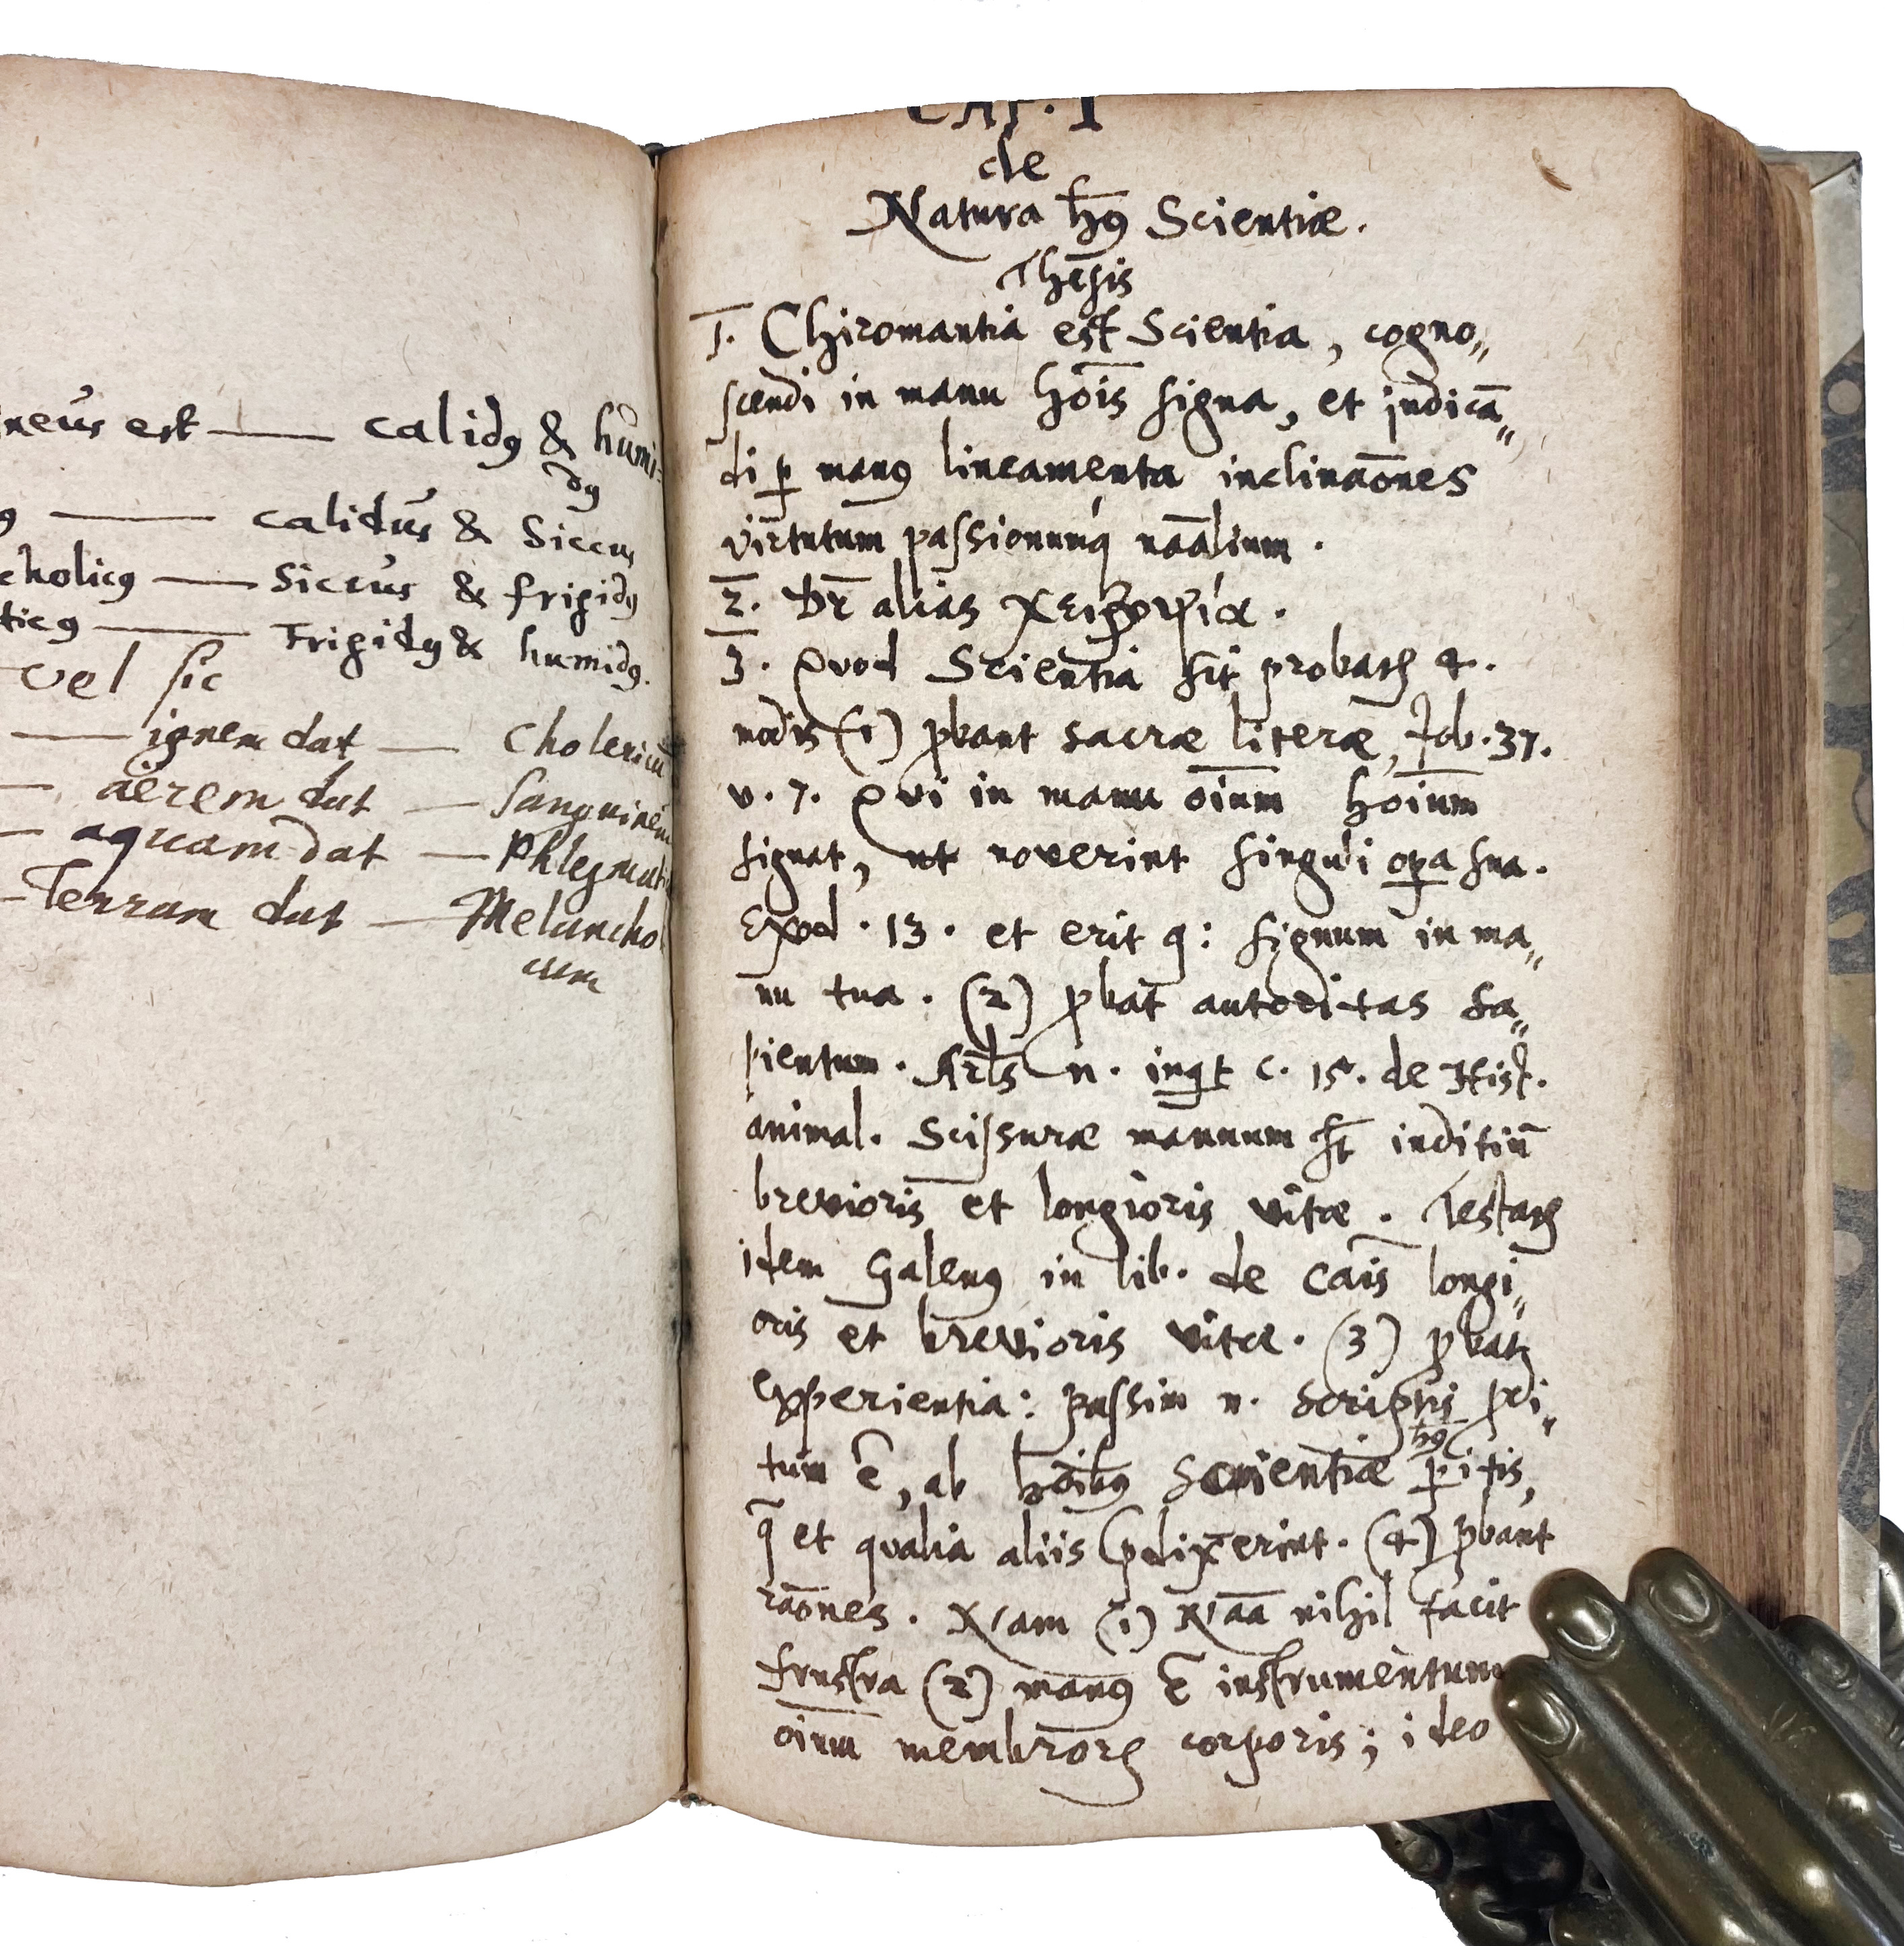 neus est — calidꝯ & humi=
dꝯ
— calidus & Siccus
cholicꝯ — Siccus & frigidꝯ
ticꝯ — Frigidꝯ & humidꝯ.
vel sic
— ignem dat — Cholericū
— aërem dat — Sanguineum
— aquam dat — Phlegmati
— Terram dat — Melancho
cum
CAP. I
de
Natura hꝯ Scientiæ.
Thesis
1. Chiromantia est Scientia, cogno„
scendi in manu hōīs signa, et judicā„
di ꝑ manꝯ lineamenta inclinaōnes
virtutum passionumq́ naālium.
2. Dr̄ alias χειρ
3. Quod Scientia sit probatꝝ 4.
modis (1) ꝓbant sacræ literæ, Job. 37.
v. 7. Qui in manu oīum hoīum
signat, ut noverint singuli oꝑa sua.
Exod. 13. et erit q: signum in ma„
nu tua. (2) ꝓbat autoritas Sa„
pientum. Arl̄s n. inqt c. 15. de Hist.
animal. Scissuræ manuum st̄ inditiū
brevioris et longioris vitæ. Testatꝝ
idem Galenꝯ in lib. de caīs longi„
oris et brevioris vitæ. (3) ꝓbatꝝ
experientia: passim n. scriptis ꝓdi„
tum ē, ab hoībꝯ Scientiæ hꝯ ꝑitis,
q̄ et qualia aliis p̄dixerint. (4) ꝓbant
raōnes. Nam (1) Naā nihil facit
frustra (2) manꝯ ē instrumentum
oīum membrorꝝ corporis; ideo